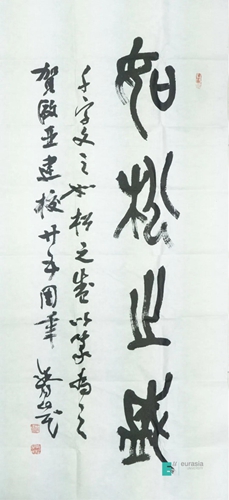 如松之盛
千字文之如松之盛以篆为之
贺欧亚建校廿年国华
eurasia